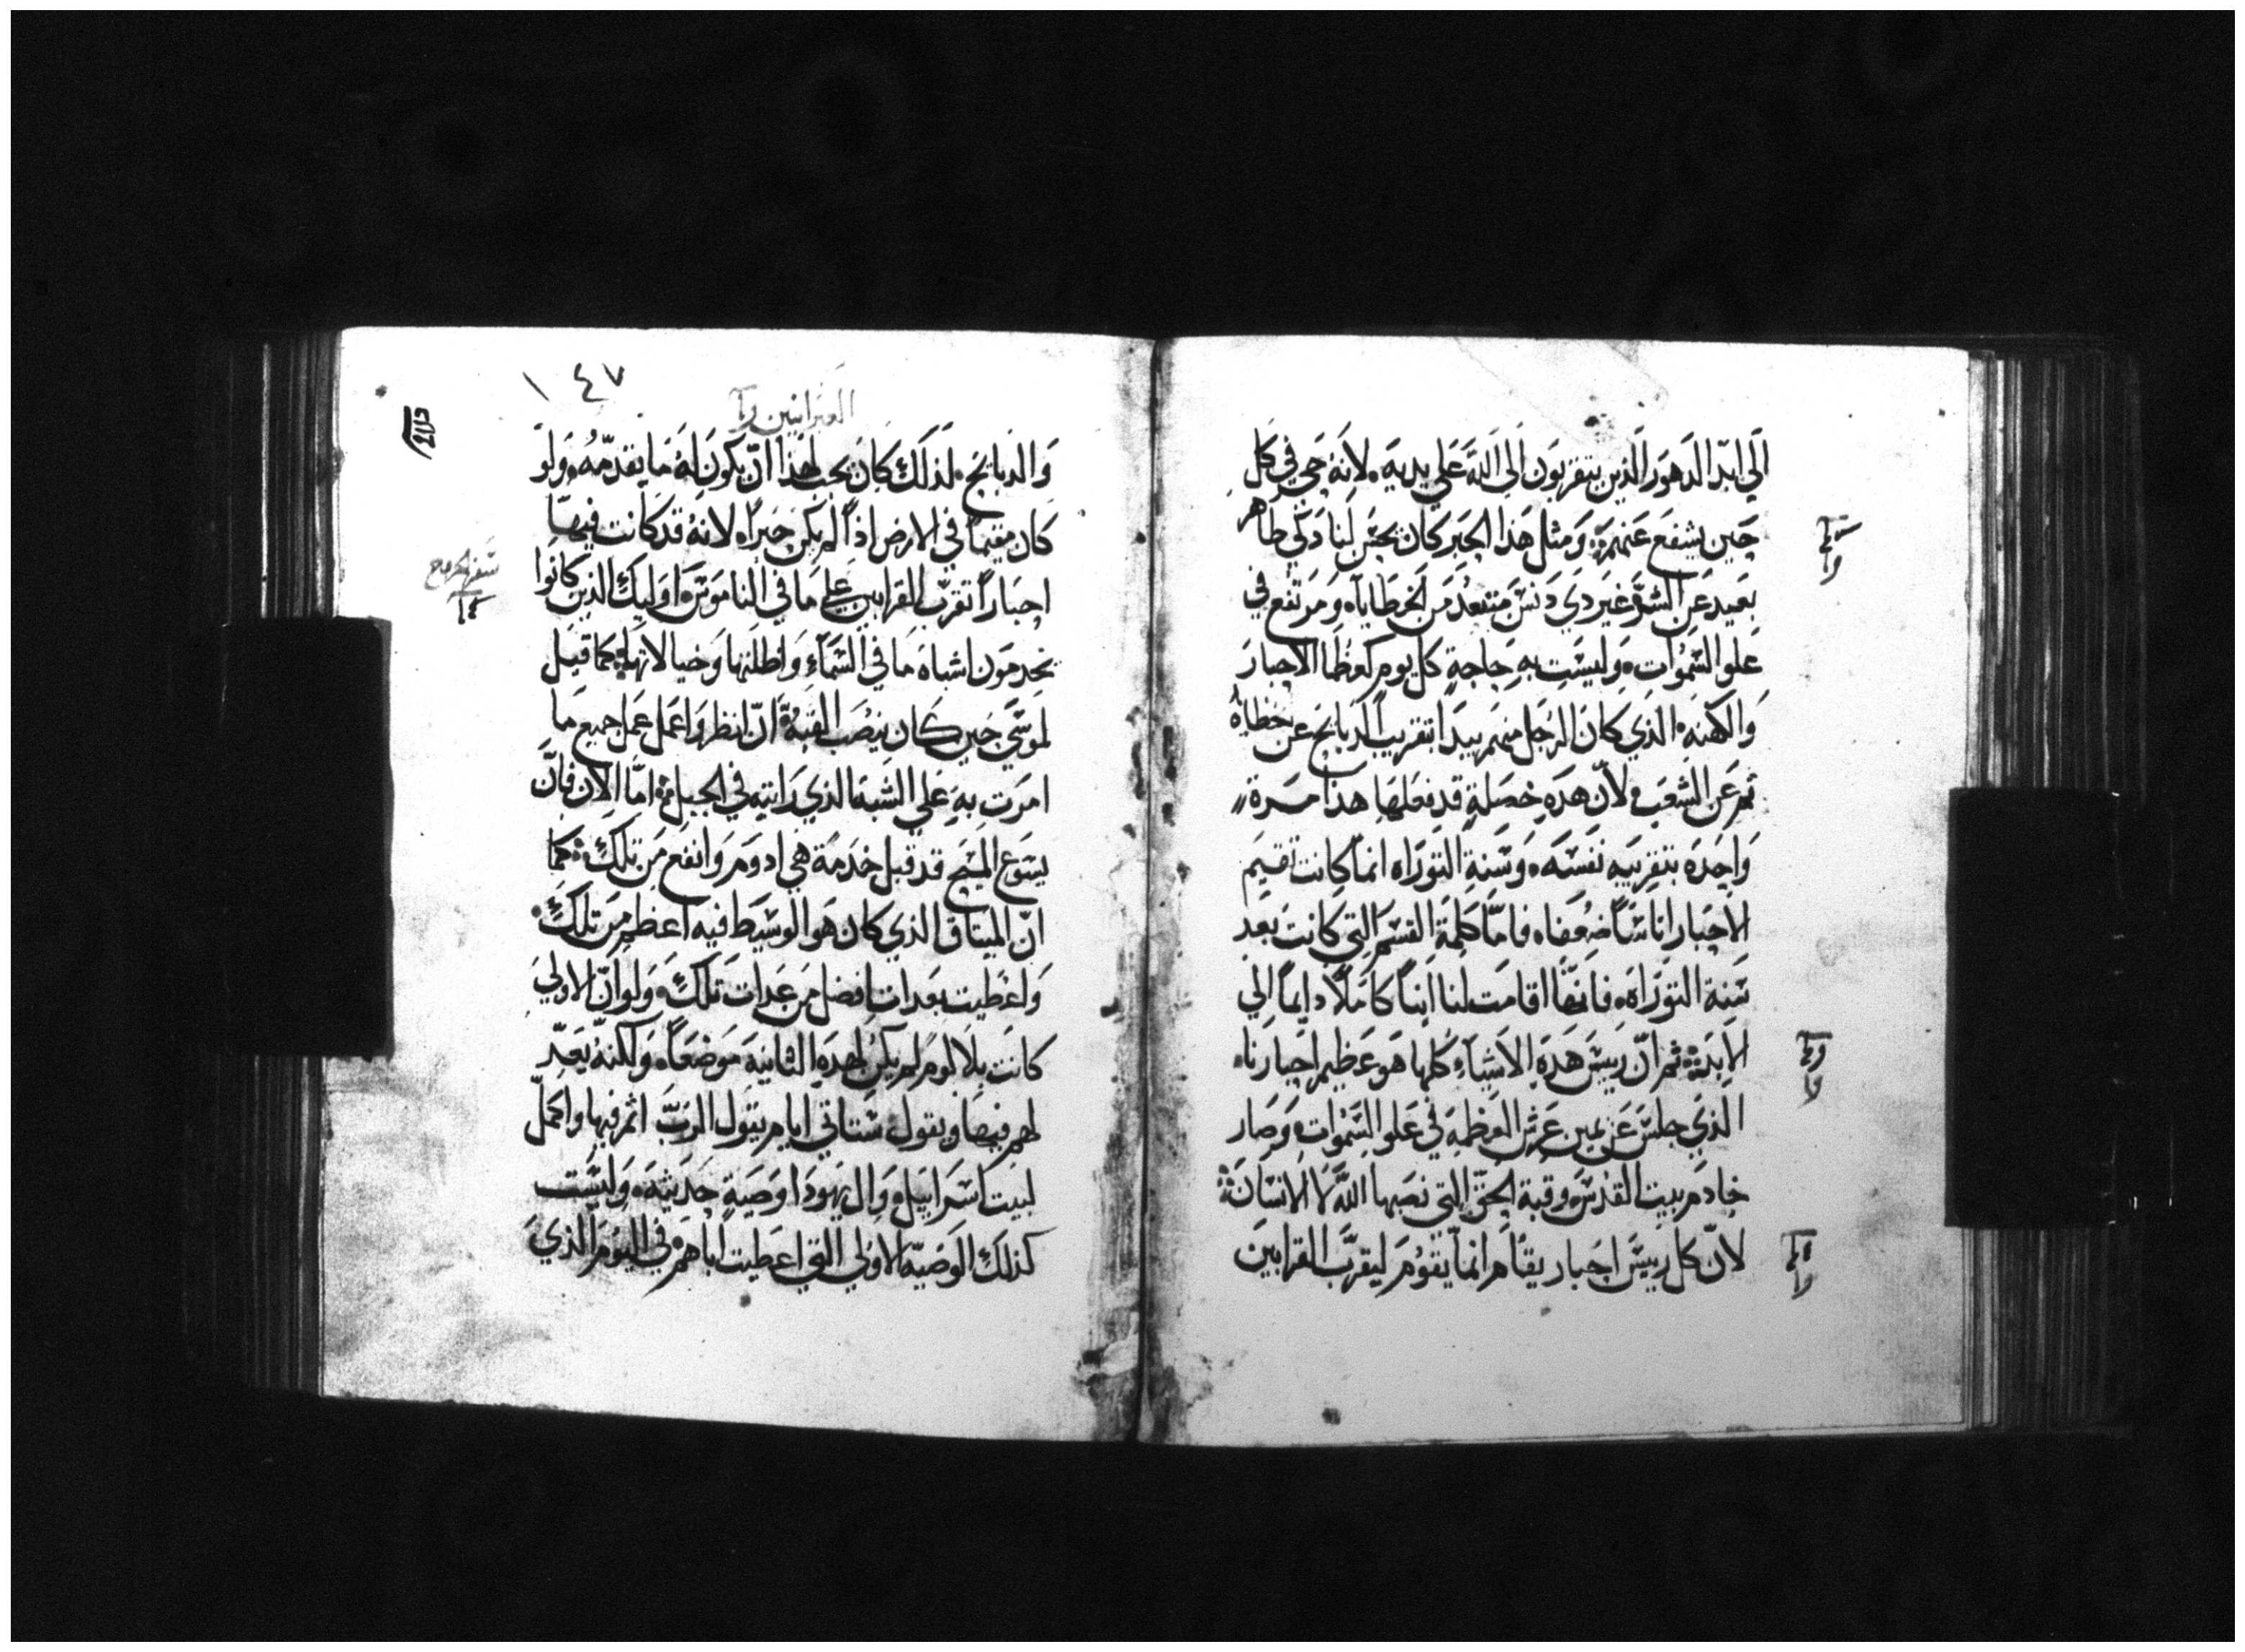 الي ابد الدهور الذين يتقربون الي الله علي يديه، لانه حي في كل
حين يشفع عنهم، ومثل هذا الحبر كان يحسن لنا دكي طاهر
بعيد عن الشر غير دي دنس متبعد من الخطايا، ومرتفع في
علو السموات، وليست به حاجة كل يوم كعظما الاحبار
والكهنه، الذي كان الرجل منهم يبدا بتقريب الدبايح عن خطاياه
ثم عن الشعب، لان هده خصلة قد فعلها هذا مرة
واحده بتقريبه نفسه، وسنة التوراه انما كانت تقيم
الاحبار اناسا ضعفاه فاما كلمة القسم التي كانت بعد
سنة التوراة، فانها اقامت لنا ابنا كاملا دايما الي
الابد، ثم ان رييس هده الاشياء كلها هو عظيم احبارناه
الذي جلس عن يمين عرش العظمه في علو السموات، وصار
خادم بيت القدس، وقبة الحق التي نصبها الله لا الانسان
لان كل رييس احبار يقام انما يقوم ليقرب القرابين
١٤٧
العبرانيين
والدبايح، لذلك كان يجب لهذا ان يكون له ما يقدمه، ولو
كان مقيما في الارض اذا لم يكن حبراه لانه قد كانت فيها
احبارا تقرب القرابين علي ما في الناموس، اوليك الذين كانوا
يخدمون اشباه ما في السماء واظلتها وخيالاتها، كما قيل
لموسي حين كان ينصب القبة، ان انظر واعمل عمل جميع ما
امرت به علي الشبه الذي رايته في الجبل، اما الان فان
يسوع المسيح قد قبل خدمة هي ادوم وانفع من تلك، كما
ان الميتاق الذي كان هو الوسيط فيه اعظم من تلك،
واعطيت بعدات افضل من عدات تلك، ولو ان الاولي
كانت بلا لوم لم يكن لهده الثانية موضعا، ولكنه يعد
لهم فيها ويقول، ستاتي ايام يقول الرب اثم فيها واكمل
لبيت اسراييل، وال يهودا وصية حديثه، وليست
كذلك الوصيه الاولي التي اعطيت اباهم في اليوم الذي